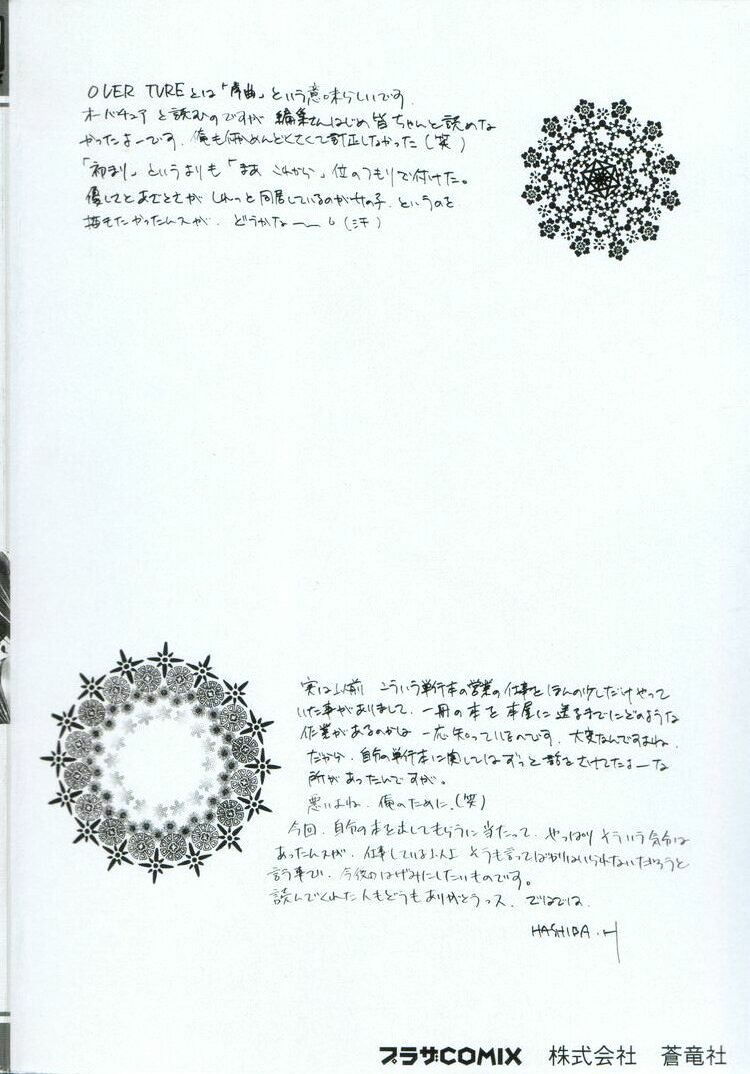 OVER TUREとは「序曲」という意味らしいです。
オーバチュアと読むのですが 編集さんはじめ皆ちゃんと読めな
かったよーです。俺も何かめんどくさくて訂正しなかった（笑）
「初まり」というよりも「まあ これから」位のつもりで付けた。
しれっと同居しているのが女の子、というのを
描きたかったんスが、どうかな——。（汗）
実は以前 こういう単行本の営業の仕事をほんの少しだけやって
いた事がありまして、一冊の本を本屋に送るまでにどのような
作業があるのかは 一応知っているのです。大変なんですよね。
だから、自分の単行本に関してはずっと話をさけてたよーな
所があったんですが。
悪いよね、俺のために。（笑）
今回、自分の本を出してもらうに当たって、やっぱり そういう気分は
あったんスが、仕事している以上 そうも言ってばかりはいられないだろうと
言う事で、今後のはげみにしたいものです。
読んでくれた人もどうもありがとうっス。ではでは。
HASHIBA.H
プラザCOMIX 株式会社 蒼竜社